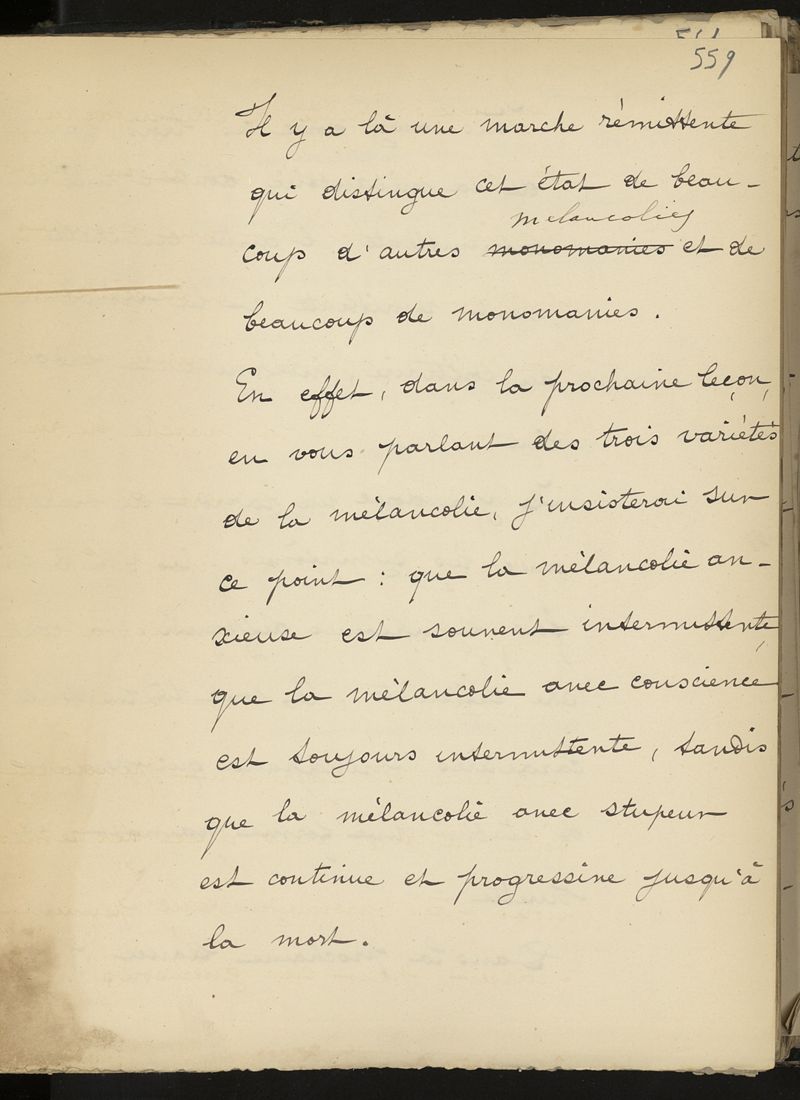 559
Il y a là une marche rémittente
qui distingue cet état de beau-
melancolies
coup d'autres monomanies et de
beaucoup de monomanies.
En effet, dans la prochaine leçon,
en vous parlant des trois variétés
de la mélancolie, j'insisterai sur
ce point : que la mélancolie an-
xieuse est souvent intermittente,
que la mélancolie avec conscience
est toujours intermittente, tandis
que la mélancolie avec stupeur
est continue et progressive jusqu'à
la mort.